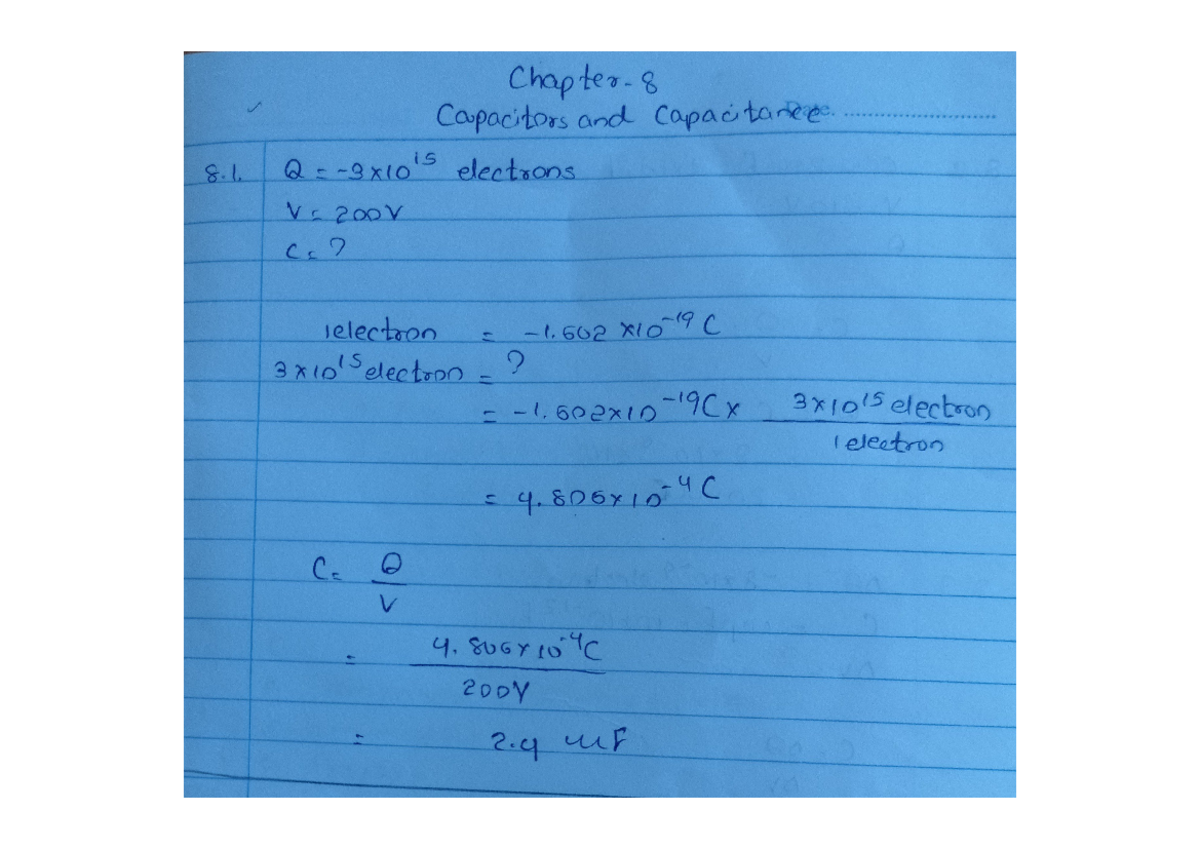 Chapter-8
Capacitors and Capacitance
8.1. Q = -3×10¹⁵ electrons
V = 200V
C = ?
1electron = -1.602 ×10⁻¹⁹ C
3×10¹⁵ electron = ?
= -1.602×10⁻¹⁹C × 3×10¹⁵ electron
1 electron
= 4.806×10⁻⁴ C
C = Q
V
= 4.806×10⁻⁴C
200V
= 2.4 uF